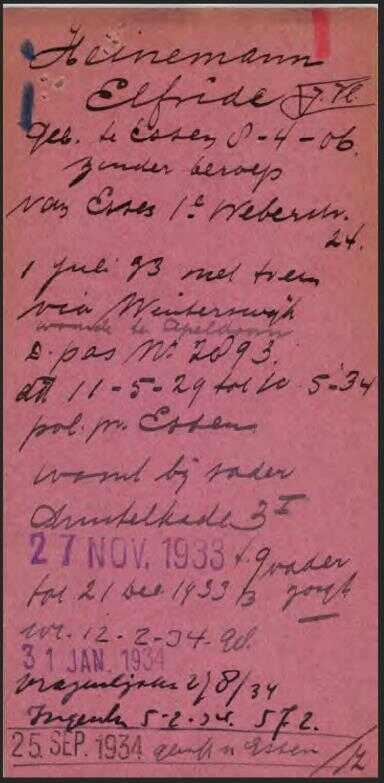 Heinemann
Elfride
geb. te Essen 8-4-06.
zonder beroep
van Essen 1e Weberstr.
24.
1 Juli 33 met trein
via Winterswijk
woonde te Apeldoorn
D. pas No 2893.
dd 11-5-29 tot 10-5-34
pol. pr. Essen
woont bij vader
Amstelkade 3 I
27 NOV. 1933 vader
tot 21 Dec 1933 zorgt
12-2-34
31 JAN. 1934
vragenlijst 2/8/34
5-2-34. 572.
25 SEP. 1934 Essen